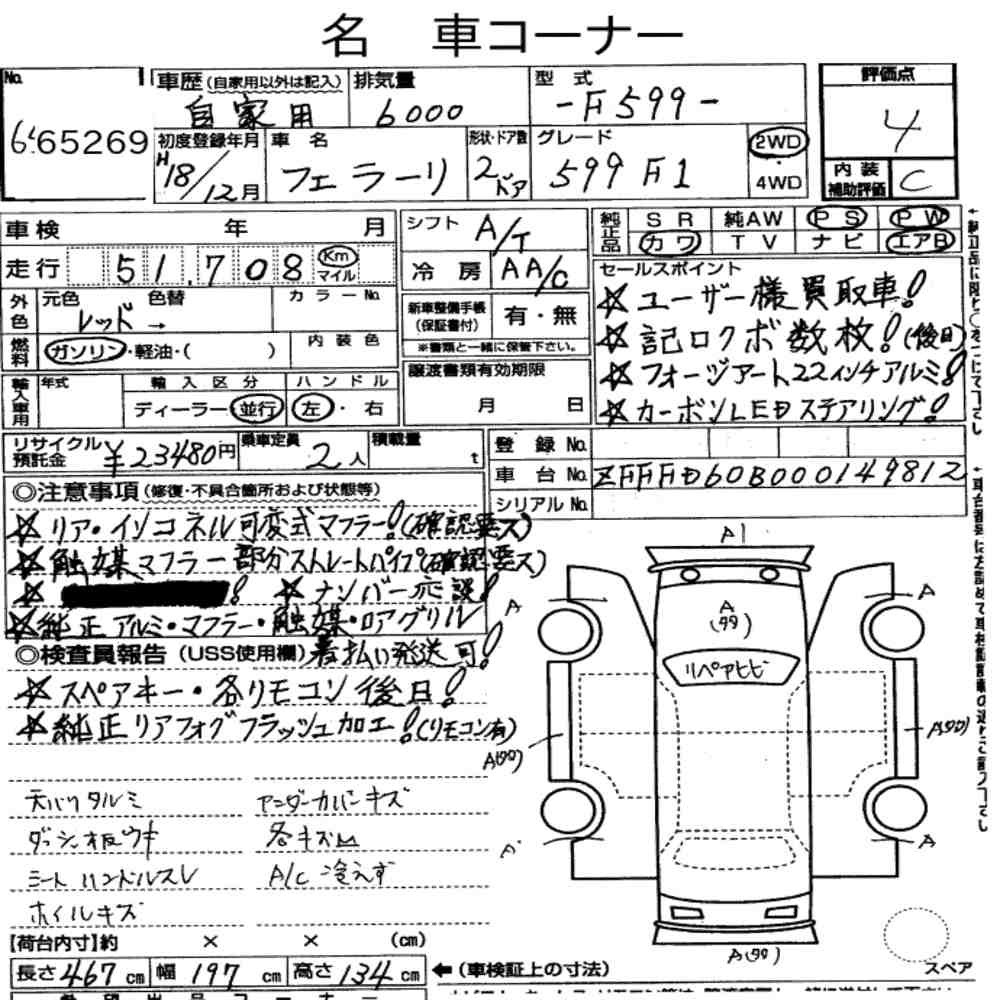 名 車コーナー
No.
65269
車歴 (自家用以外は記入) 排気量 型 式 評価点
自家用 6000 -F599- 4
初度登録年月 車 名 形状・ドア数 グレード 2WD・4WD
H18/12月 フェラーリ 2ドア 599 F1
内装補助評価 C
車検 年 月
シフト A/T
純正品 SR 純AW PS PW
カワ TV ナビ エアB
走行 51,708 Km マイル
冷房 AA/C
外色 元色 色替 カラーNo.
レッド →
新車整備手帳(保証書付) 有・無
※書類と一緒に保管下さい。
燃料 ガソリン・軽油・( ) 内装色
輸入車用 年式 輸入区分 ハンドル
ディーラー・並行 左・右
譲渡書類有効期限
月 日
セールスポイント
☆ユーザー様買取車!
☆記ロクボ数枚!(後日)
☆フォージアート22インチアルミ!
☆カーボンLEDステアリング!
リサイクル預託金 ¥23480円 乗車定員 2人 積載量 t
登録No.
車台No. ZFFFD60B000149812
シリアルNo.
◎注意事項(修復・不具合箇所および状態等)
☆リア・インコネル可変式マフラー!(確認要ス)
☆触媒マフラー部分ストレートパイプ(確認要ス)
☆ ! ☆ナンバー応談!
☆純正アルミ・マフラー・触媒・ロアグリル
◎検査員報告(USS使用欄)着払い発送可!
☆スペアキー・各リモコン後日!
☆純正リアフォグフラッシュ加工!(リモコン有)
天バリタルミ アンダーカバーキズ
ダッシュ板ウキ 各キズ凹
シートハンドルスレ A/C 冷えず
ホイルキズ
A1
A A
A
(タタ)
リペアヒビ
A(タタ) A(タタ)
A A
A(タタ)
スペア
【荷台内寸】約 × × (cm)
長さ467cm 幅197cm 高さ134cm ←(車検証上の寸法)